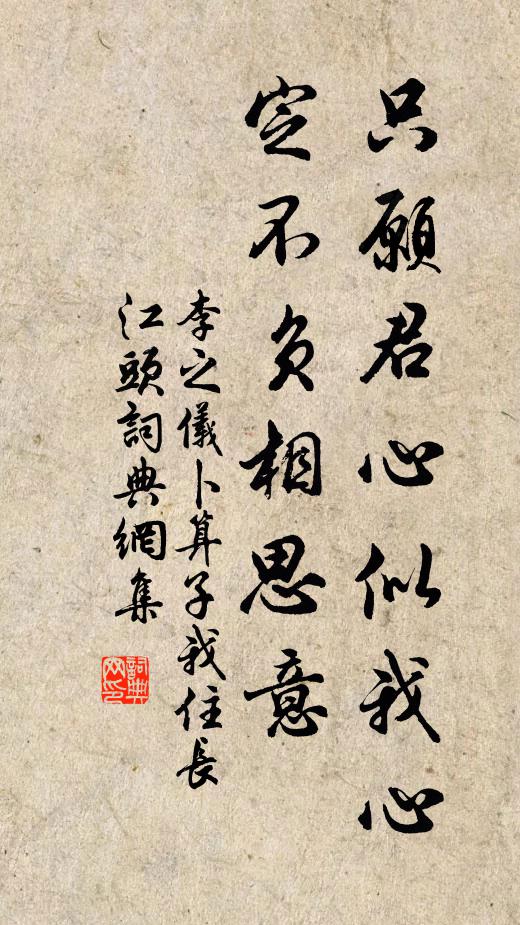 只願君心似我心
定不負相思意
李之儀卜算子我住長
江頭詞典網集
詞典網印